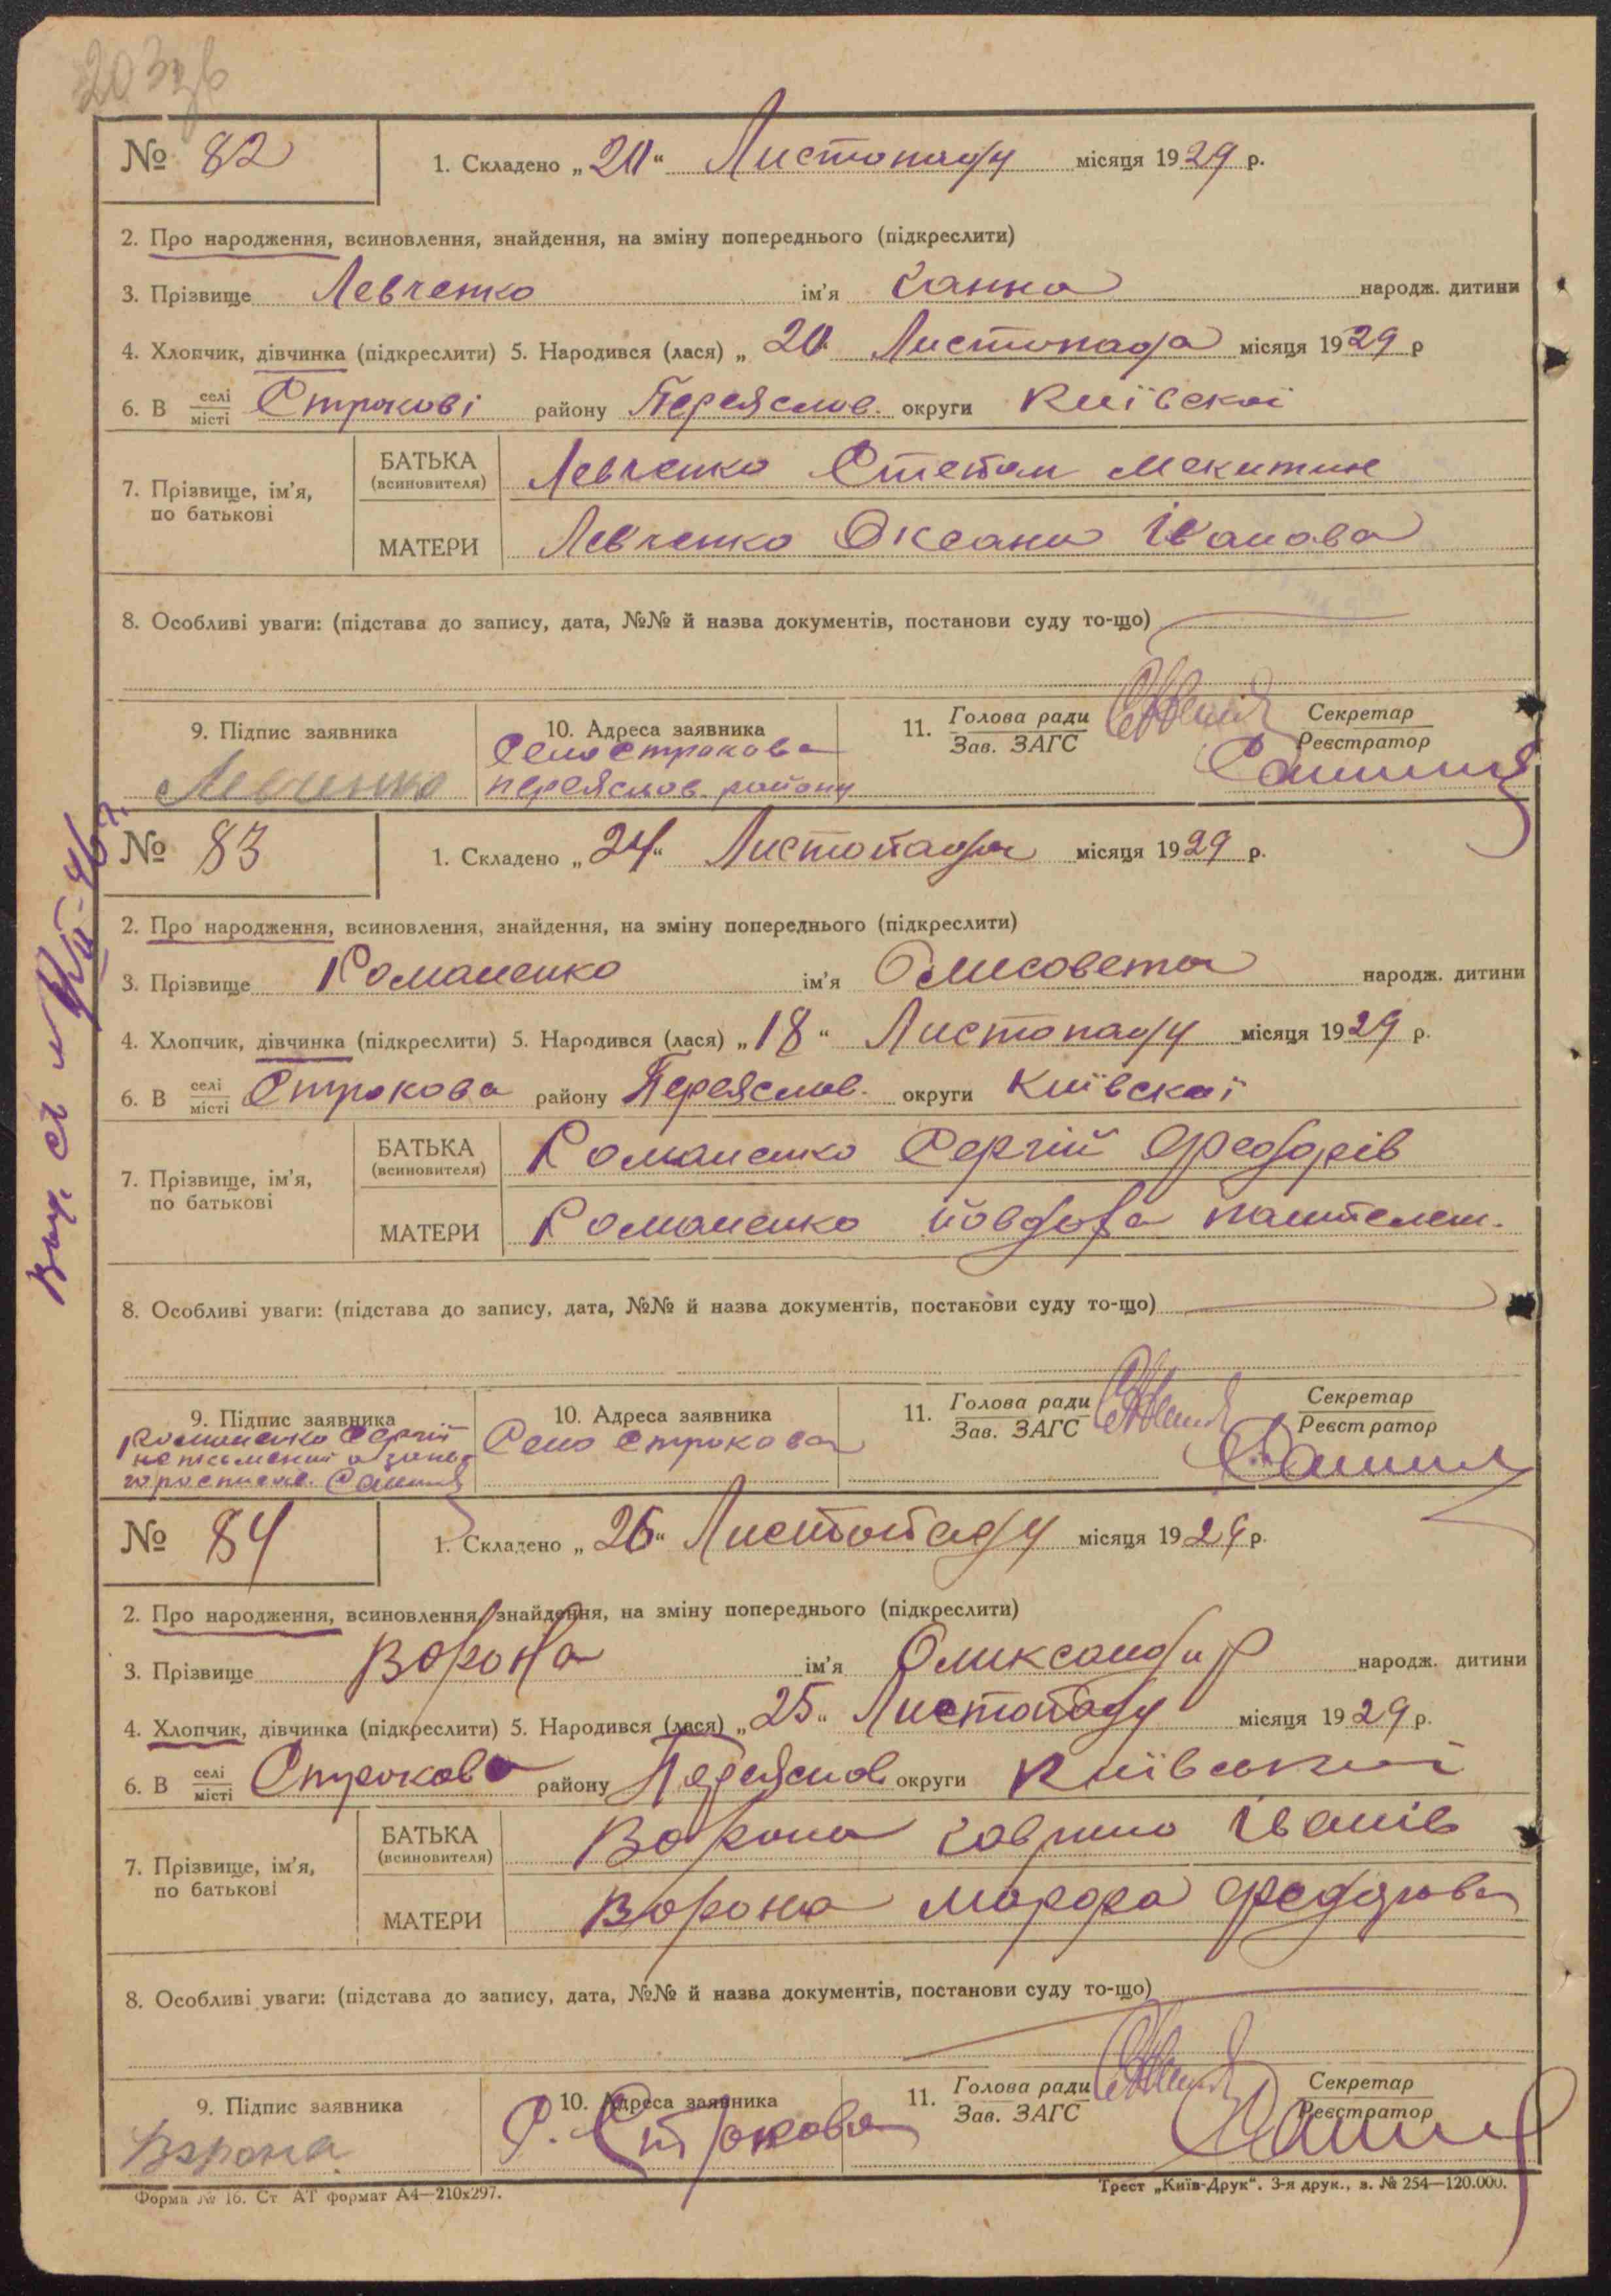 № 82
1. Складено „20“ Листопаду місяця 1929 р.
2. Про народження, всиновлення, знайдення, на зміну попереднього (підкреслити)
3. Прізвище Левченко ім'я Ганна народж. дитини
4. Хлопчик, дівчинка (підкреслити) 5. Народився (лася) „20 Листопада місяця 1929 р
6. В селі місті Строкові району Переяслов. округи Київскої
7. Прізвище, ім'я, по батькові
БАТЬКА (всиновителя) Левченко Степан Мекитин
МАТЕРИ Левченко Оксана Іванова
8. Особливі уваги: (підстава до запису, дата, №№ й назва документів, постанови суду то-що)
9. Підпис заявника Левченко
10. Адреса заявника Село Строкова Переяслов. району
11. Голова ради Зав. ЗАГС
Секретар Реєстратор
№ 83
1. Складено „24“ Листопада місяця 1929 р.
2. Про народження, всиновлення, знайдення, на зміну попереднього (підкреслити)
3. Прізвище Романенко ім'я Олисовета народж. дитини
4. Хлопчик, дівчинка (підкреслити) 5. Народився (лася) „18“ Листопаду місяця 1929 р.
6. В селі місті Строкова району Переяслов. округи Київскої
7. Прізвище, ім'я, по батькові
БАТЬКА (всиновителя) Романенко Сергій Федорів
МАТЕРИ Романенко Йовдоха Пантелем.
8. Особливі уваги: (підстава до запису, дата, №№ й назва документів, постанови суду то-що)
9. Підпис заявника Романенко Сергій
10. Адреса заявника Село Строкова
11. Голова ради Зав. ЗАГС
Секретар Реєстратор
№ 84
1. Складено „26“ Листопаду місяця 1929 р.
2. Про народження, всиновлення, знайдення, на зміну попереднього (підкреслити)
3. Прізвище Ворона ім'я Олександир народж. дитини
4. Хлопчик, дівчинка (підкреслити) 5. Народився (лася) „25“ Листопаду місяця 1929 р.
6. В селі місті Строкова району Переяслов округи Київської
7. Прізвище, ім'я, по батькові
БАТЬКА (всиновителя) Ворона Гаврило Іванів
МАТЕРИ Ворона Федорова
8. Особливі уваги: (підстава до запису, дата, №№ й назва документів, постанови суду то-що)
9. Підпис заявника Ворона
10. Адреса заявника С. Строкова
11. Голова ради Зав. ЗАГС
Секретар Реєстратор
Форма № 16. Ст АТ формат А4—210х297.
Трест „Київ-Друк“. 3-я друк., з. № 254—120.000.